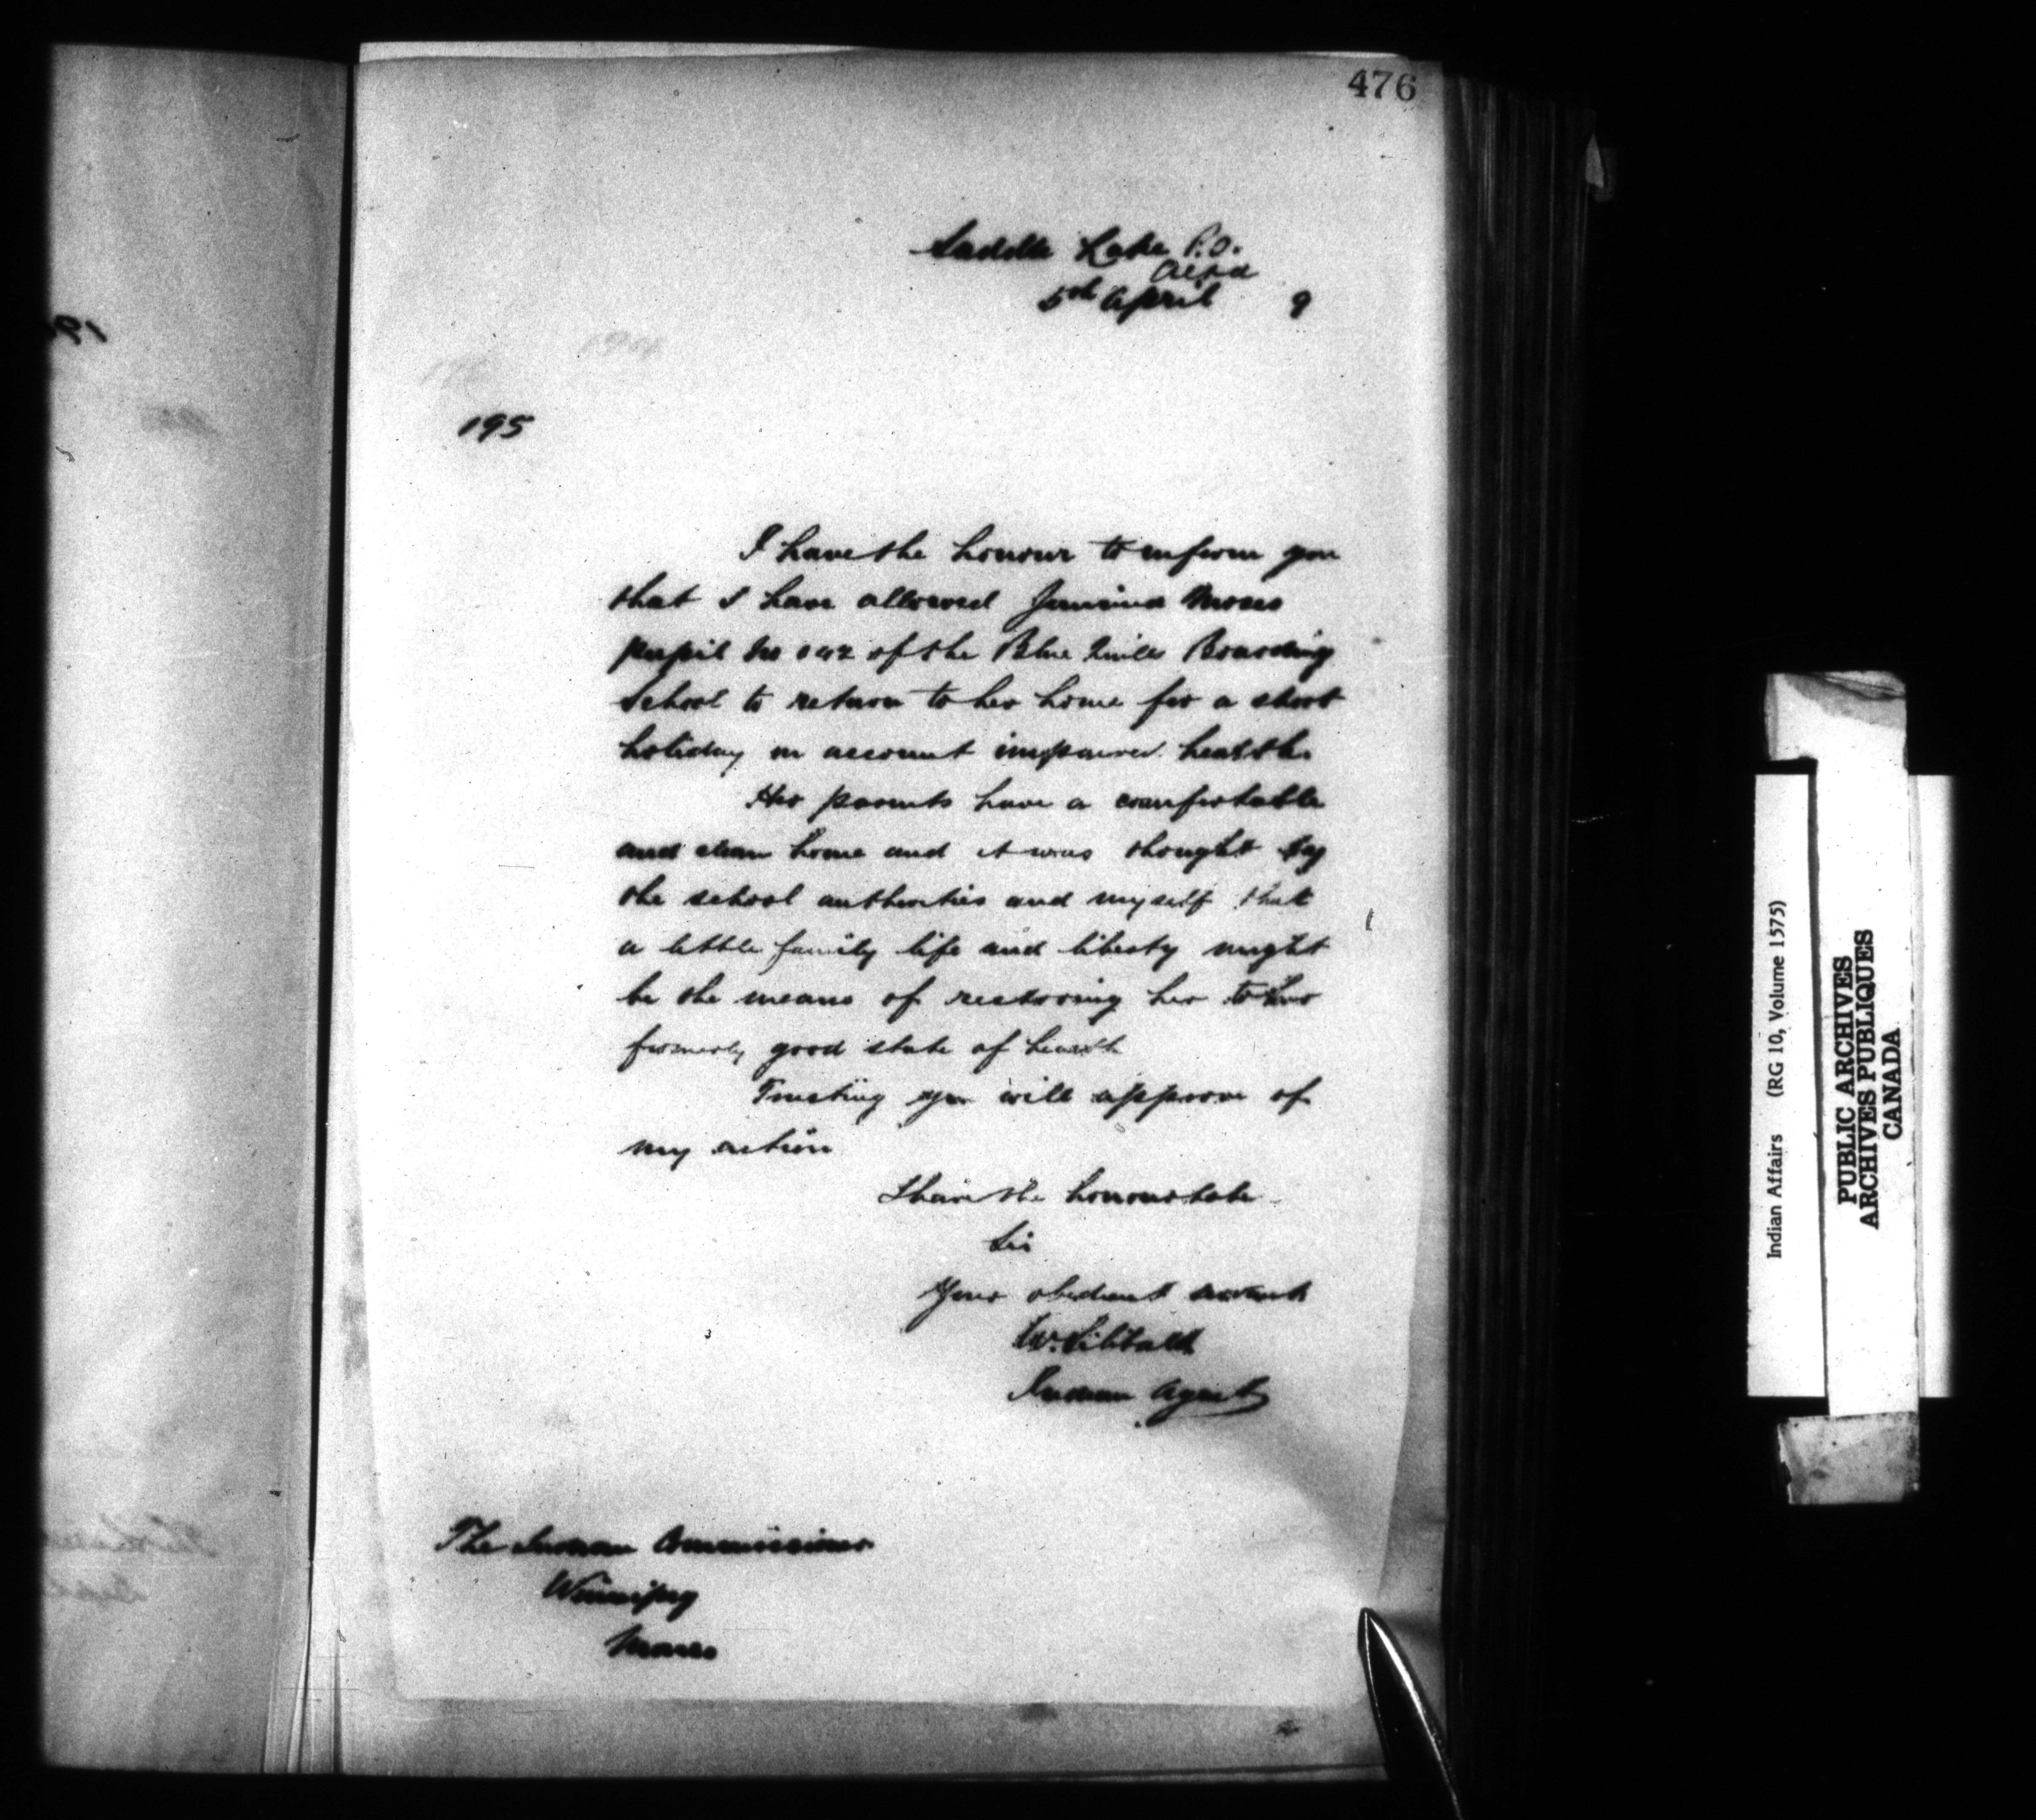 476
Saddle Lake P.O.
Alta
5th April 9
195
I have the honour to inform you
that I have allowed Jemima Moses
pupil No 042 of the Blue Quills Boarding
School to return to her home for a short
holiday on account impaired health.
Her parents have a comfortable
and clean home and it was thought by
the school authorities and myself that
a little family life and liberty might
be the means of restoring her to her
formerly good state of health
Trusting you will approve of
my action
I have the honour to be
Sir
Your obedient servant
W. Sibbald
Indian Agent
The Indian Commissioner
Winnipeg
Indian Affairs (RG 10, Volume 1575)
PUBLIC ARCHIVES
ARCHIVES PUBLIQUES
CANADA